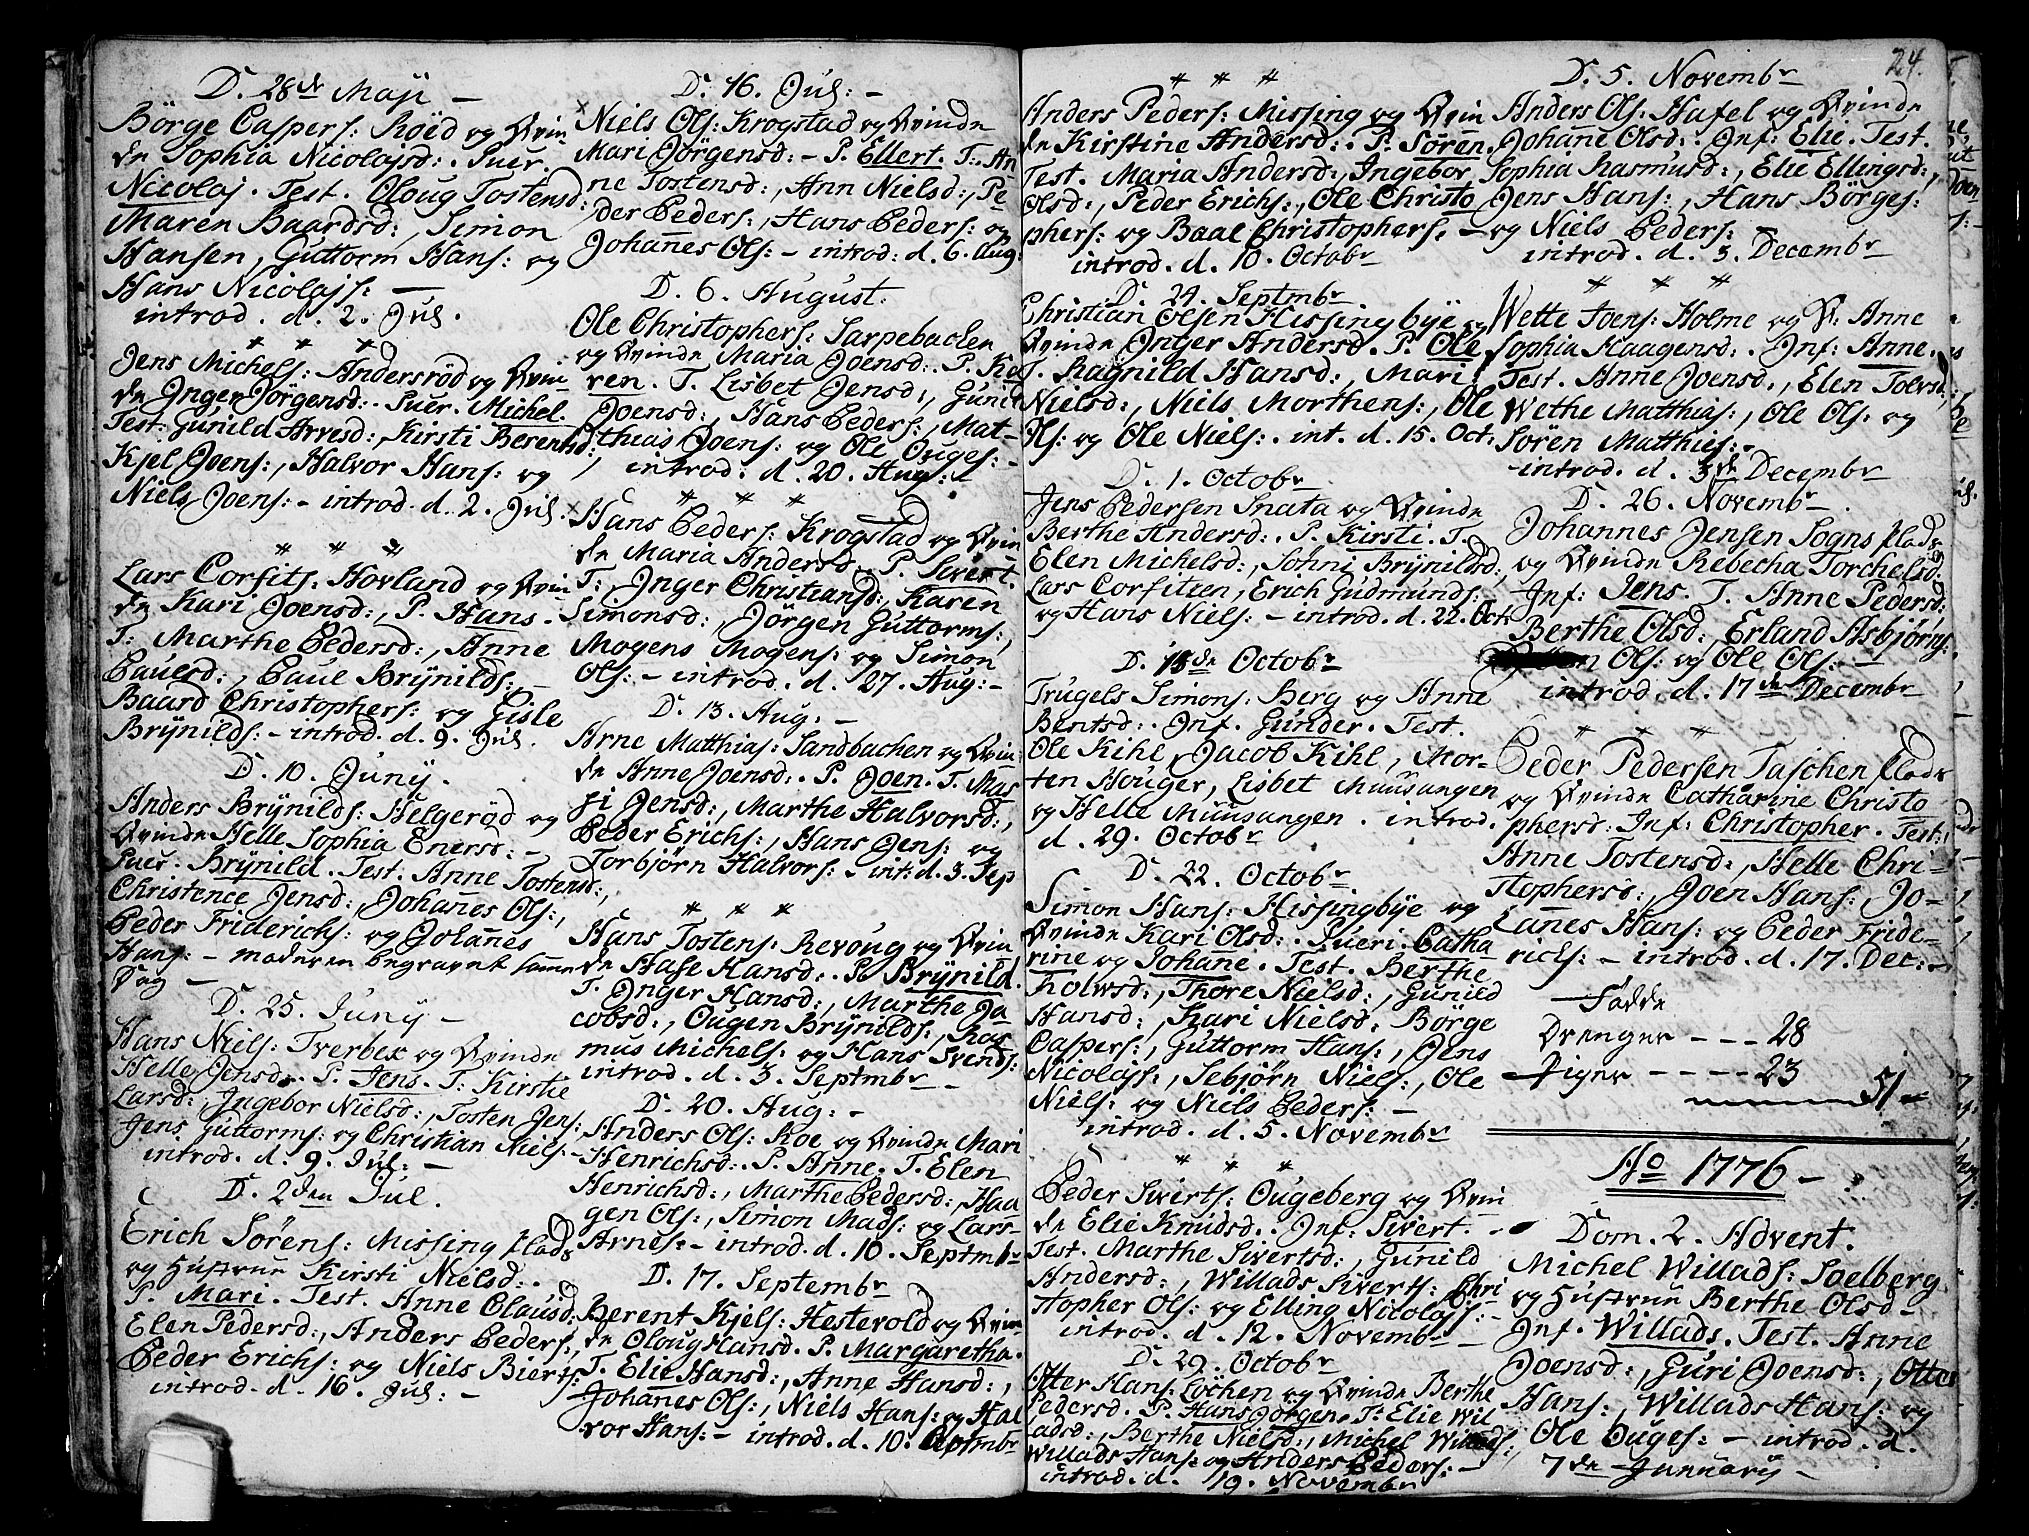 D. 28de Maji –
Børge Caspers: Røed og Qvin-
de Sophia Nicolajsd: Puer.
Nicolaj. Test. Oloug Tostensd:
Maren Baardsd:, Simon
Hansen, Guttorm Hans: og
Hans Nicolajs: –
introd. d. 2. Jul.
* * *
Jens Michels: Andersrød og Qvin-
de Inger Jørgensd: Puer. Michel.
Test: Gunild Arnesd:, Kirsti Berentsd:,
Kjel Joens:, Halvor Hans: og
Niels Joens: – introd. d. 2. Jul:
* * *
Lars Corfits. Hovland og Qvin-
de Kari Joensd:, P. Hans.
T: Marthe Pedersd:, Anne
Pauelsd:, Paul Brÿnilds: –
Baard Christophers: og Gisle
Brÿnilds: – introd. d. 9. Jul.
D. 10. Junÿ.
Anders Brÿnilds: Helgerød og
Qvinde Helle Sophia Enersd: –
Puer. Brÿnild. Test. Anne Tostensd:,
Christence Jensd:, Johañes Ols:,
Peder Friderichs: og Johañes
Hans: – moderen begravet samme
Dag –
D. 25. Junÿ –
Hans Niels: Tverbex og Qvinde
Helle Jensd: P. Jens. T: Kirstie
Larsd:, Ingebor Nielsd:, Tosten Jens:
Jens Guttorms: og Christian Niels: –
introd. d. 9. Jul: –
D. 2den Jul.
Erich Sørens: Missing plads
og Hustrue Kirsti Nielsd:.
P. Mari. Test. Anne Clausd:
Elen Pedersd:, Anders Peders:,
Peder Erichs: og Niels Bierts:
introd. d. 16. Jul: –
D. 16. Jul: –
Niels Ols: Krogstad og Qvinde
Mari Jørgensd: – P. Ellert. T: An-
ne Tostensd:, Ann Nielsd:, Pe-
der Peders:, Hans Peders: og
Johañes Ols: – introd: d. 6. Aug:
D. 6. August.
Ole Christophers: Sarpebachen
og Qvinde Maria Joensd: P. Ka-
ren. T. Lisbet Jensd:, Gunild
Joensd:, Hans Peders:, Mat-
thias Joens: og Ole Ouges: –
introd: d. 20. Aug: –
* * *
Hans Peders: Krogstad og Qvin-
de Maria Andersd: P. Sivert.
T: Inger Christiansd:, Karen
Simonsd:, Jørgen Guttorms:,
Mogens Mogens: og Simon
Ols: – introd. d. 27. Aug: –
D. 13. Aug: –
Arne Matthias: Sandbachen og Qvin-
de Anne Joensd: P. Joen. T. Mas
si Jensd:, Marthe Halvorsd:,
Peder Erichs:, Hans Jens: og
Torbjørn Halvors: – int: d. 3. Sep
* * *
Hans Tostens: Revoug og Qvin-
de Hase Hansd: P. Brÿnild.
T. Inger Hansd:, Marthe Ja-
cobsd:, Ougen Brÿnilds:, Ras-
mus Michels: og Hans Svends:
introd. d. 3. Septmbr –
D. 20. Aug: –
Anders Ols: Roe og Qvinde Mari
Henrichsd: P. Anne. T. Elen
Henrichsd:, Marthe Pedersd:, Haa-
gen Ols:, Simon Mads: og Lars
Arnes: – introd. d. 10. Septmbr
D. 17. Septembr
Berent Kjels: Hestevold og Qvin-
de Oloug Hansd. P. Margaretha.
T. Elie Hansd:, Anne Hansd:,
Johañes Ols:, Niels Hans: og Hal-
vor Hans: – introd. d. 10. Septmbr
24.
* * *
Anders Peders: Missing og Qvin
de Kirstine Andersd: P. Søren.
Test. Maria Andersd:, Ingebor
Olsd:, Peder Erichs:, Ole Christo
phers: og Baal Christophers. –
introd. d. 10. Octobr
D. 24. Septmbr
Christian Olsen Hissingbÿe og
Qvinde Inger Andersd. P. Ole.
T. Ragnild Hansd:, Mari
Nielsd:, Niels Morthens:, Ole
Ols: og Ole Niels: int. d. 15. Oct.
D. 1. Octobr
Jens Pedersen Snata og Qvinde
Berthe Andersd: P. Kirsti. T.
Elen Michelsd:, Sønni Brÿnildsd:,
Lars Corfitzen, Erich Gudmunds:
og Hans Niels: – introd. d. 22. Octr
D. 18de Octobr
Trugels Simons: Berg og Anne
Bentsd: Inf. Gunder. Test.
Ole Kihl, Jacob Kihl, Mor-
ten Houger, Lisbet Muusangen
og Helle Muusangen. introd.
d. 29. Octobr
D. 22. Octobr
Simon Hans: Hissingbÿe og
Qvinde Kari Olsd: Pueri. Catha
rine og Johañe. Test. Berthe
Tholwsd:, Thore Nielsd:, Gunild
Hansd:, Kari Nielsd: Børge
Caspers:, Guttorm Hans:, Jens
Nicolajs:, Sebjørn Niels:, Ole
Niels: og Niels Peders: –
introd. d. 5. Novembr
* * *
Peder Siverts: Ougeberg og Qvin
de Elie Knudsd: Inf: Sivert. –
Test. Marthe Sivertsd:, Gunild
Andersd:, Willads Siverts: Chri
stopher Ols: og Elling Nicolajs: –
introd. d. 12. Novembr
D. 29. Octobr
Otter Hans: Løchen og Qvinde Berthe
Pedersd. P. Hans Jørgen. T: Elie Wil
ladsd:, Berthe Nielsd:, Michel Willads:,
Willads Hans: og Anders Peders: –
introd. d. 19. Novembr
D. 5. Novembr
Anders Ols: Hafel og Qvinde
Johañe Olsd: Inf: Elie. Test.
Sophia Rasmusd:, Elie Ellingsd:,
Jens Hans:, Hans Børges:
og Niels Peders: –
introd. d. 3. Decembr
* * *
Wette Joens: Holme og Q: Anne
Sophia Haagensd: Inf: Anne.
Test. Anne Joensd:, Elen Tolvsd:,
Wethe Matthias:, Ole Ols: og
Søren Matthias: –
introd. d. 3de Decembr
D. 26. Novembr
Johannes Jensen Sogns plads
og Qvinde Rebecha Torchelsd:
Inf: Jens. T. Anne Pedersd:
Berthe Olsd:, Erland Asbjørns:
Ols: og Ole Ols: –
introd. d. 17de Decembr
* * *
Peder Pedersen Taschen plads
og Qvinde Catharine Christo
phersd: Inf: Christopher. Test:
Anne Tostensd:, Helle Chri-
stophersd:, Joen Hans:, Jo-
hañes Hans: og Peder Fride-
richs: – introd. d. 17. Dec: –
Fødde
Drenger – – – 28
Piger – – – – 23
51
Ao 1776 –
Dom. 2. Advent.
Michel Willads: Soelberg
og Hustrue Berthe Olsd –
Inf. Willads. Test. Anne
Joensd:, Guri Joensd:, Otter
Hans:, Willads Hans: og
Ole Ouges: – introd. d.
7de Januarÿ –